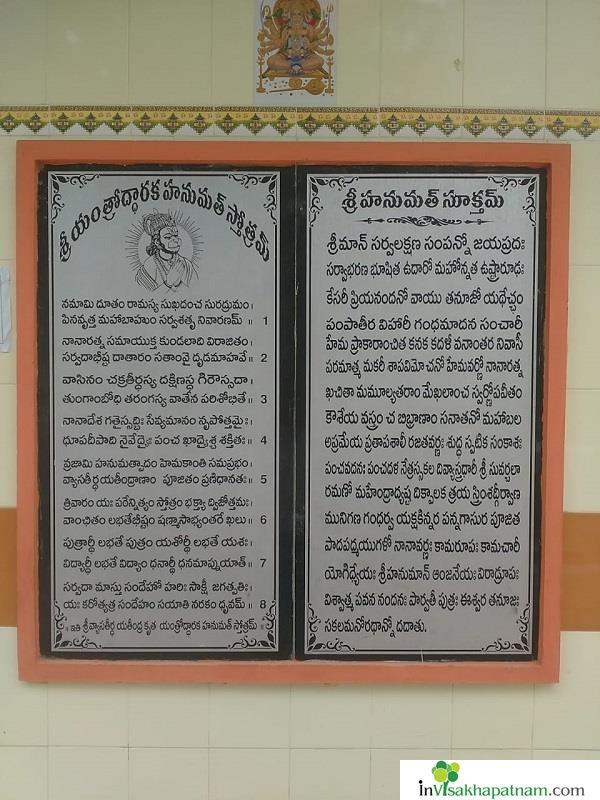 శ్రీ యంత్రోద్ధారక హనుమత్ స్తోత్రమ్
నమామి దూతం రామస్య సుఖదంచ సురద్రుమం।
పినవృత్త మహాబాహుం సర్వశత్రు నివారణమ్ ॥ 1
నానారత్న సమాయుక్త కుండలాది విరాజితం।
సర్వదాభీష్ట దాతారం సతాంవై దృఢమాహవే ॥ 2
వాసినం చక్రతీర్థస్య దక్షిణస్థ గిరౌస్సదా।
తుంగాంబోధి తరంగస్య వాతేన పరిశోభితే ॥ 3
నానాదేశ గతైస్సద్భిః సేవ్యమానం నృపోత్తమైః।
ధూపదీపాది నైవేద్యైః పంచ ఖాద్యైశ్చ శక్తితః ॥ 4
వ్రజామి హనుమత్పాదం హేమకాంతి సమప్రభం।
వ్యాసతీర్థయతీంద్రాణాం పూజితం ప్రణిదానతః ॥ 5
త్రివారం యః పఠేన్నిత్యం స్తోత్రం భక్త్యా ద్విజోత్తమః।
వాంఛితం లభతేభీష్టం షణ్మాసాభ్యంతరే ఖలు ॥ 6
పుత్రార్థీ లభతే పుత్రం యశోర్థీ లభతే యశః।
విద్యార్థీ లభతే విద్యాం ధనార్థీ ధనమాప్నుయాత్ ॥ 7
సర్వదా మాస్తు సందేహో హరిః సాక్షీ జగత్పతిః।
యః కరోత్యత్ర సందేహం సయాతి నరకం ధృవమ్ ॥ 8
॥ ఇతి శ్రీవ్యాసతీర్థ యతీంద్ర కృత యంత్రోద్ధారక హనుమత్ స్తోత్రమ్ ॥
శ్రీ హనుమత్ సూక్తమ్
శ్రీమాన్ సర్వలక్షణ సంపన్నో జయప్రదః
సర్వాభరణ భూషిత ఉదారో మహోన్నత ఉష్ట్రారూఢః
కేసరీ ప్రియనందనో వాయు తనూజో యథేచ్ఛం
పంపాతీర విహారీ గంధమాదన సంచారీ
హేమ ప్రాకారాంచిత కనక కదళీ వనాంతర నివాసీ
పరమాత్మ మకరీ శాపవిమోచనో హేమవర్ణో నానారత్న
ఖచితా మమూల్యతరాం మేఖలాంచ స్వర్ణోపవీతం
కౌశేయ వస్త్రం చ బిభ్రాణాం సనాతనో మహాబల
అప్రమేయ ప్రతాపశాలీ రజతవర్ణః శుద్ధ స్పటిక సంకాశః
పంచవదనః పంచదశ నేత్రస్సకల దివ్యాస్త్రధారీ శ్రీ సువర్చలా
రమణో మహేంద్రాద్యష్ట దిక్పాలక త్రయ స్త్రింశద్గీర్వాణ
మునిగణ గంధర్వ యక్షకిన్నర పన్నగాసుర పూజిత
పాదపద్మయుగళో నానావర్ణః కామరూపః కామచారీ
యోగిధ్యేయః శ్రీహనుమాన్ ఆంజనేయః విరాడ్రూపః
విశ్వాత్మ పవన నందనః పార్వతీ పుత్రః ఈశ్వర తనూజః
సకలమనోరథాన్నో దదాతు.
inVisakhapatnam.com